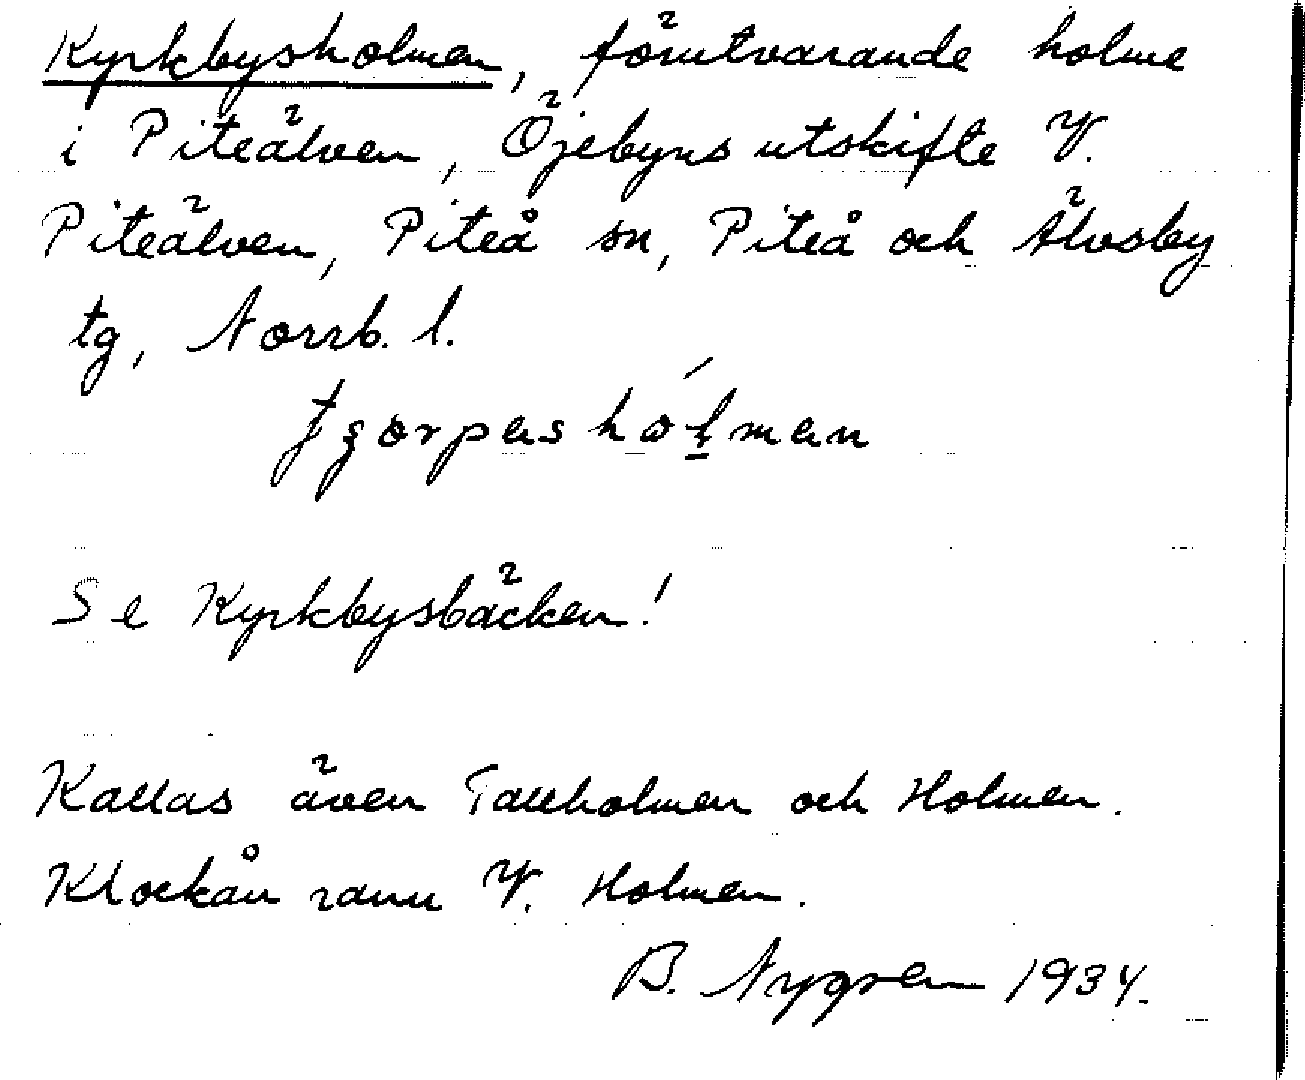 Kyrkbysholmen, förutvarande holme
i Piteälven, Öjebyns utskifte V.
Piteälven, Piteå sn, Piteå och Älvsby
tg, Norrb. l.
Se Kyrkbysbäcken!
Kallas även Tallholmen och Holmen.
Klockån rann V. Holmen.
B. Nygren 1934.